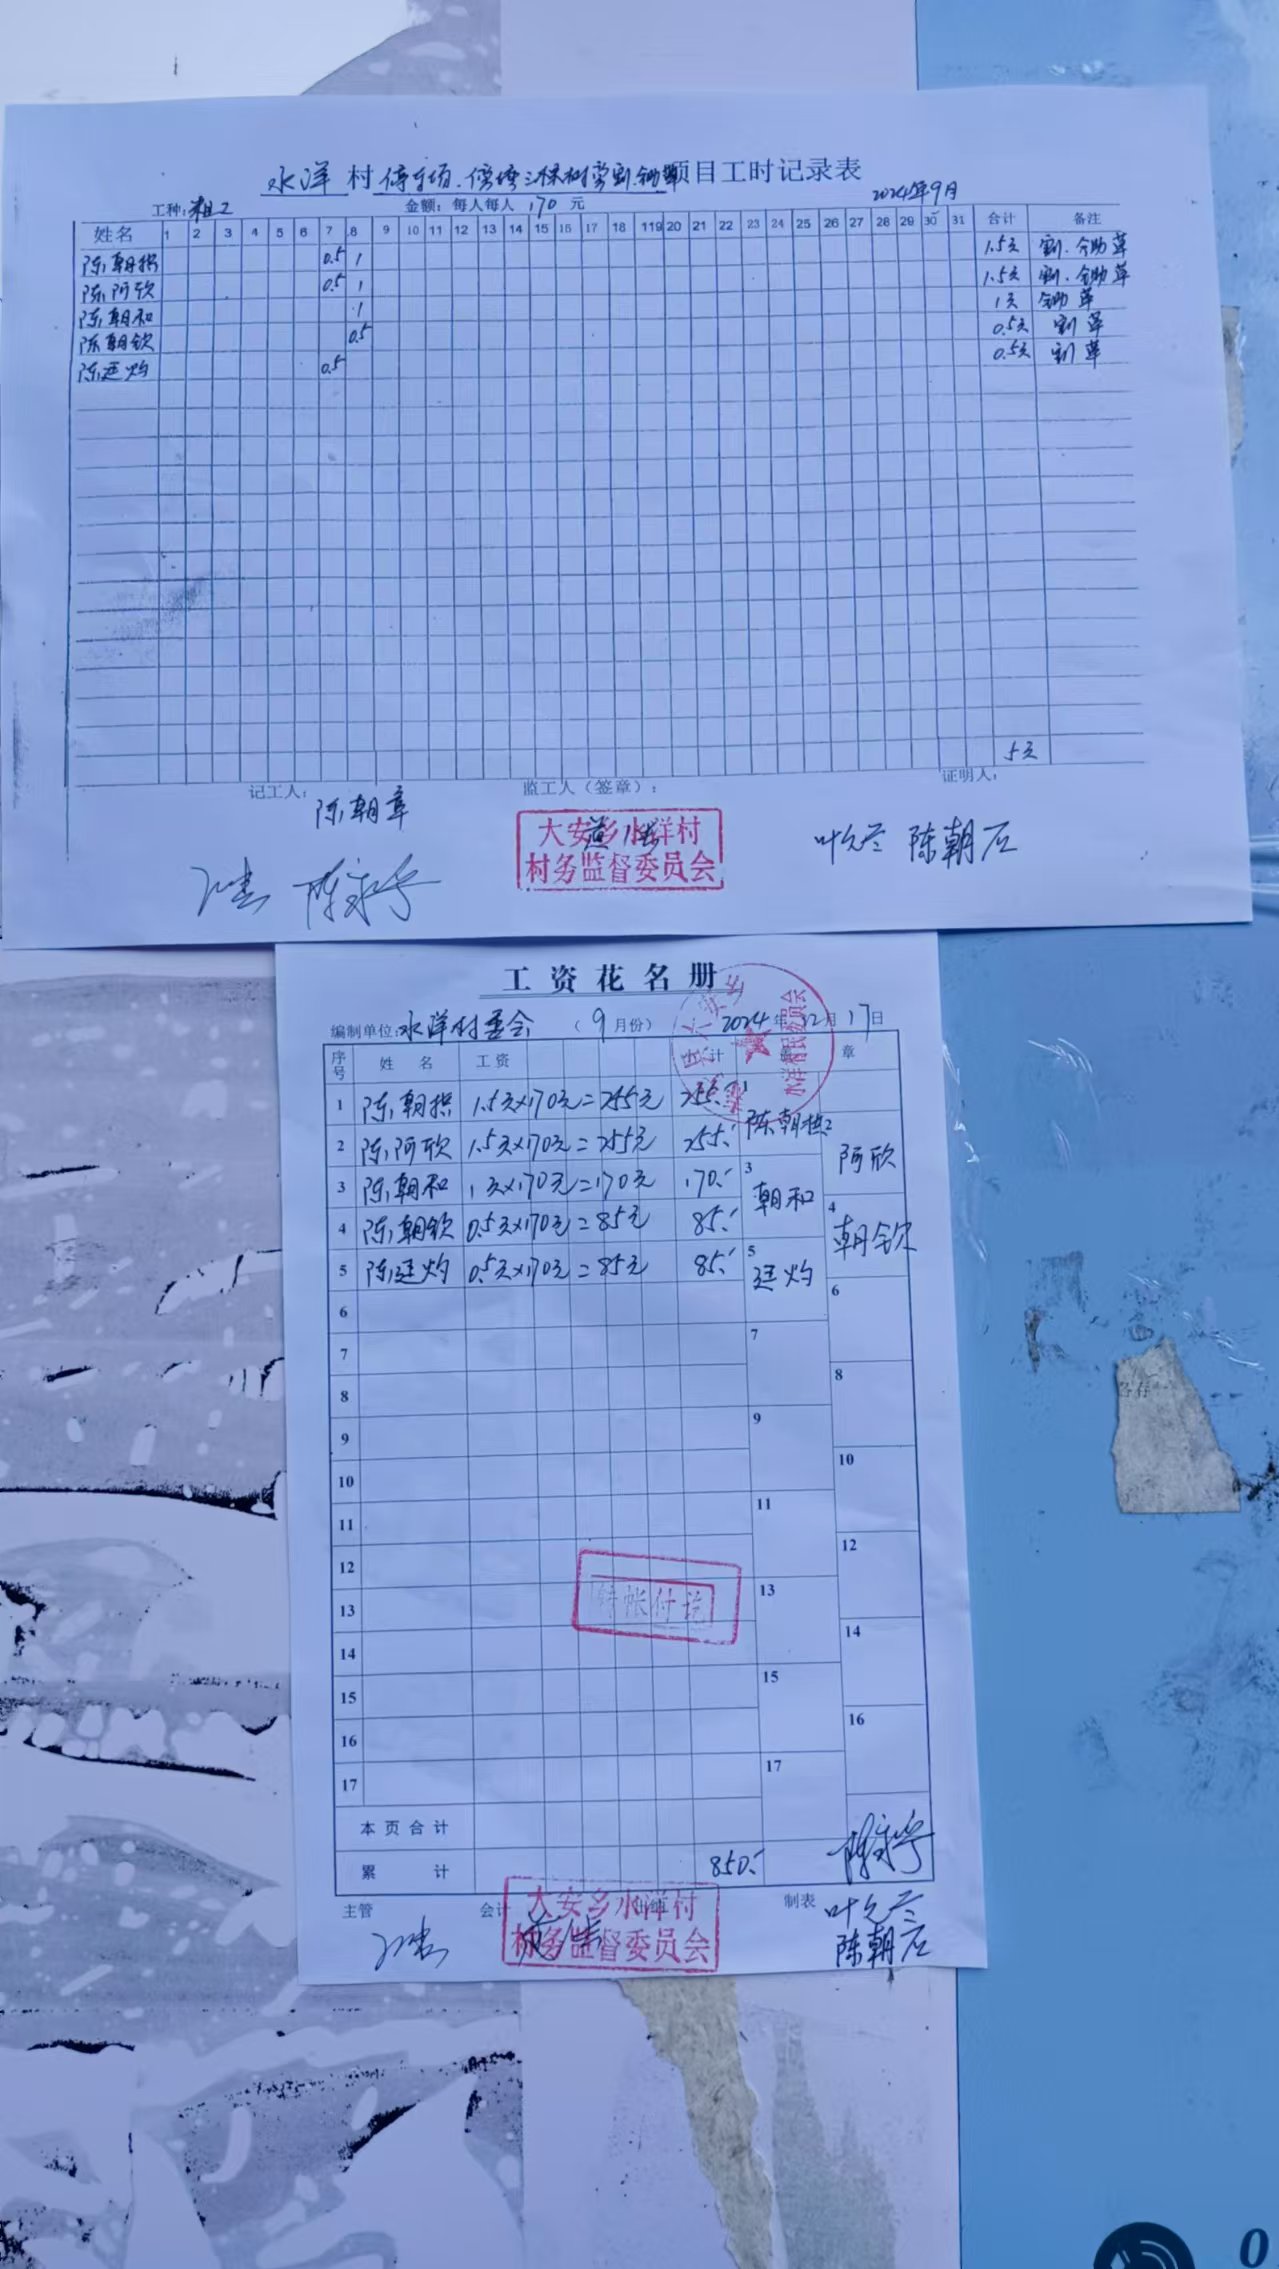 水洋 村 停车场、 项目工时记录表
工种: 粗工 金额:每人每人 170 元 2024年9月
姓名 1 2 3 4 5 6 7 8 9 10 11 12 13 14 15 16 17 18 119 20 21 22 23 24 25 26 27 28 29 30 31 合计 备注
陈朝 0.5 1 1.5天 割、锄草
陈阿欣 0.5 1 1.5天 割、锄草
陈朝和 1 1天 锄草
陈朝钦 0.5 0.5天 割草
陈廷灼 0.5 0.5天 割草
5天
记工人: 监工人(签章): 证明人:
陈朝章
大安乡水洋村
村务监督委员会
陈朝石
工资花名册
编制单位:水洋村委会 (9月份) 2024年12月17日
序号 姓名 工资 计 章
1 陈朝 1.5天×170元=255元 255.- 1
2 陈阿欣 1.5天×170元=255元 255.- 陈朝 2 阿欣
3 陈朝和 1天×170元=170元 170.- 3 朝和
4 陈朝钦 0.5天×170元=85元 85.- 4 朝钦
5 陈廷灼 0.5天×170元=85元 85.- 5 廷灼
6 6
7 7
8 8
9 9
10 10
11 11
12 12
13 转帐付讫 13
14 14
15 15
16 16
17 17
本页合计
累计 850.-
主管 会计 制表
大安乡水洋村
村务监督委员会
陈朝石
水洋村村民委员会
0